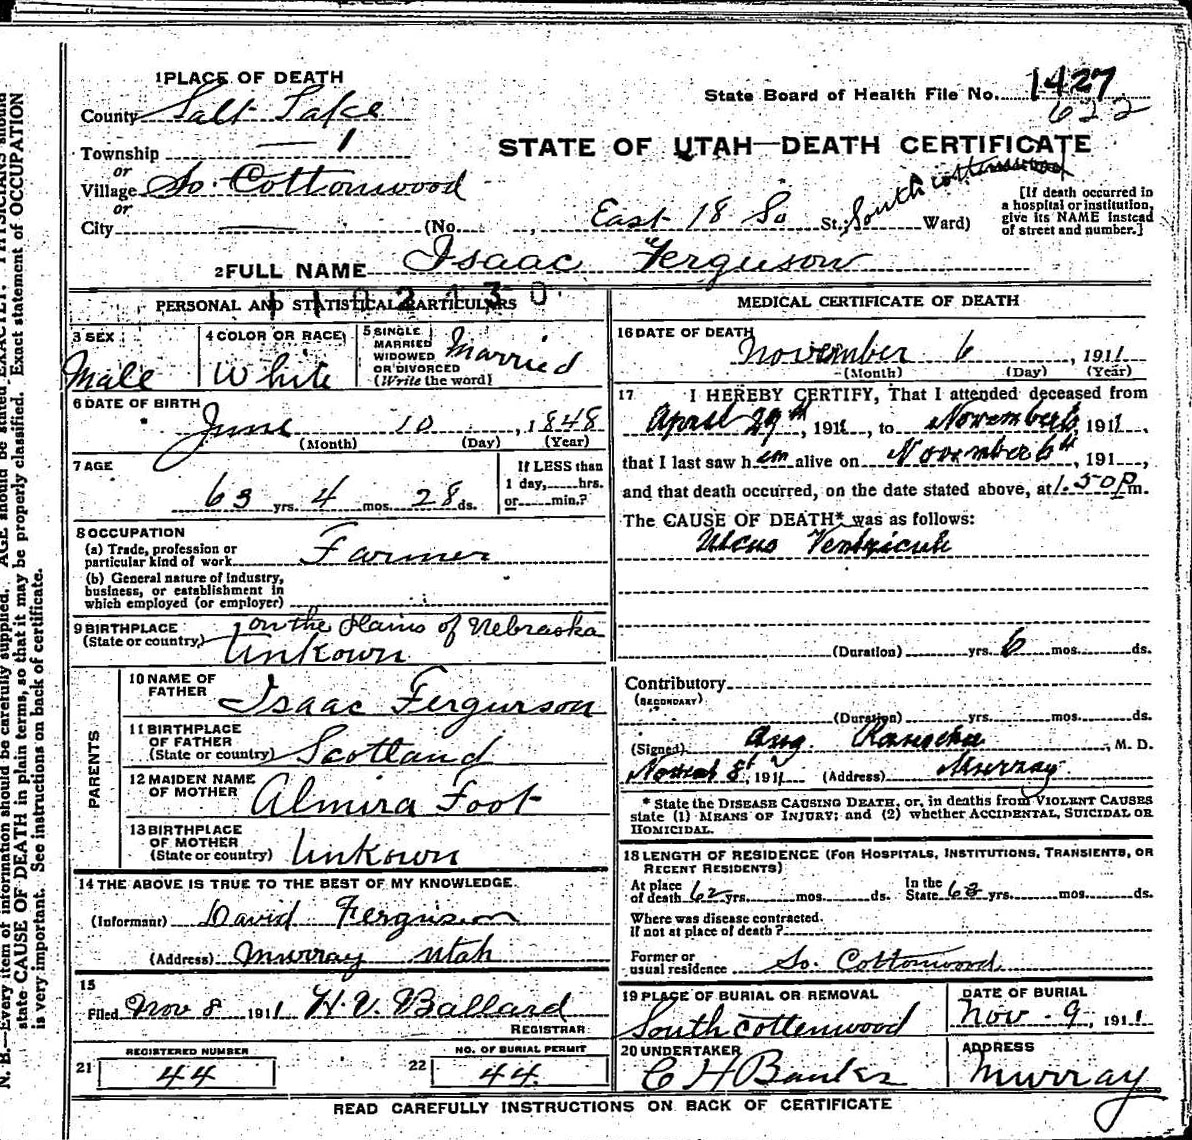 1 PLACE OF DEATH
County Salt Lake
State Board of Health File No. 1427
622
Township — 1
STATE OF UTAH—DEATH CERTIFICATE
or
Village So. Cottonwood
or
City — (No. , East 18 So St.; South cottonwood Ward)
[If death occurred in a hospital or institution, give its NAME instead of street and number.]
2 FULL NAME Isaac Ferguson
PERSONAL AND STATISTICAL PARTICULARS
3 SEX
Male
4 COLOR OR RACE
White
5 SINGLE
MARRIED
WIDOWED
OR DIVORCED
(Write the word)
Married
6 DATE OF BIRTH
June 10, 1848
(Month) (Day) (Year)
7 AGE
63 yrs. 4 mos. 28 ds.
If LESS than
1 day, hrs.
or min.?
8 OCCUPATION
(a) Trade, profession or
particular kind of work Farmer
(b) General nature of industry,
business, or establishment in
which employed (or employer)
9 BIRTHPLACE
(State or country)
on the plains of Nebraska
Unkown
PARENTS
10 NAME OF
FATHER Isaac Fergurson
11 BIRTHPLACE
OF FATHER
(State or country) Scotland
12 MAIDEN NAME
OF MOTHER Almira Foot
13 BIRTHPLACE
OF MOTHER
(State or country) Unkown
14 THE ABOVE IS TRUE TO THE BEST OF MY KNOWLEDGE.
(Informant) David Ferguson
(Address) Murray Utah
15
Filed Nov 8 1911 H. V. Ballard
REGISTRAR
REGISTERED NUMBER
21 44
NO. OF BURIAL PERMIT
22 44
MEDICAL CERTIFICATE OF DEATH
16 DATE OF DEATH
November 6, 1911
(Month) (Day) (Year)
17 I HEREBY CERTIFY, That I attended deceased from
April 29th, 1911, to November 6, 1911,
that I last saw h im alive on November 6th, 191 ,
and that death occurred, on the date stated above, at 1.50 P m.
The CAUSE OF DEATH* was as follows:
Ulcus Ventriculi
(Duration) yrs. 6 mos. ds.
Contributory
(SECONDARY)
(Duration) yrs. mos. ds.
(Signed) Aug. , M. D.
8th, 1911 (Address) Murray
* State the DISEASE CAUSING DEATH, or, in deaths from VIOLENT CAUSES
state (1) MEANS OF INJURY; and (2) whether ACCIDENTAL, SUICIDAL OR
HOMICIDAL.
18 LENGTH OF RESIDENCE (FOR HOSPITALS, INSTITUTIONS, TRANSIENTS, OR
RECENT RESIDENTS)
At place
of death 62 yrs. mos. ds.
In the
State 63 yrs. mos. ds.
Where was disease contracted.
If not at place of death?
Former or
usual residence So. Cottonwood
19 PLACE OF BURIAL OR REMOVAL
South cottenwood
DATE OF BURIAL
Nov. 9, 1911
20 UNDERTAKER
C H Banks
ADDRESS
Murray
READ CAREFULLY INSTRUCTIONS ON BACK OF CERTIFICATE
N. B.—Every item of information should be carefully supplied. AGE should be stated EXACTLY. PHYSICIANS should
state CAUSE OF DEATH in plain terms, so that it may be properly classified. Exact statement of OCCUPATION
is very important. See instructions on back of certificate.